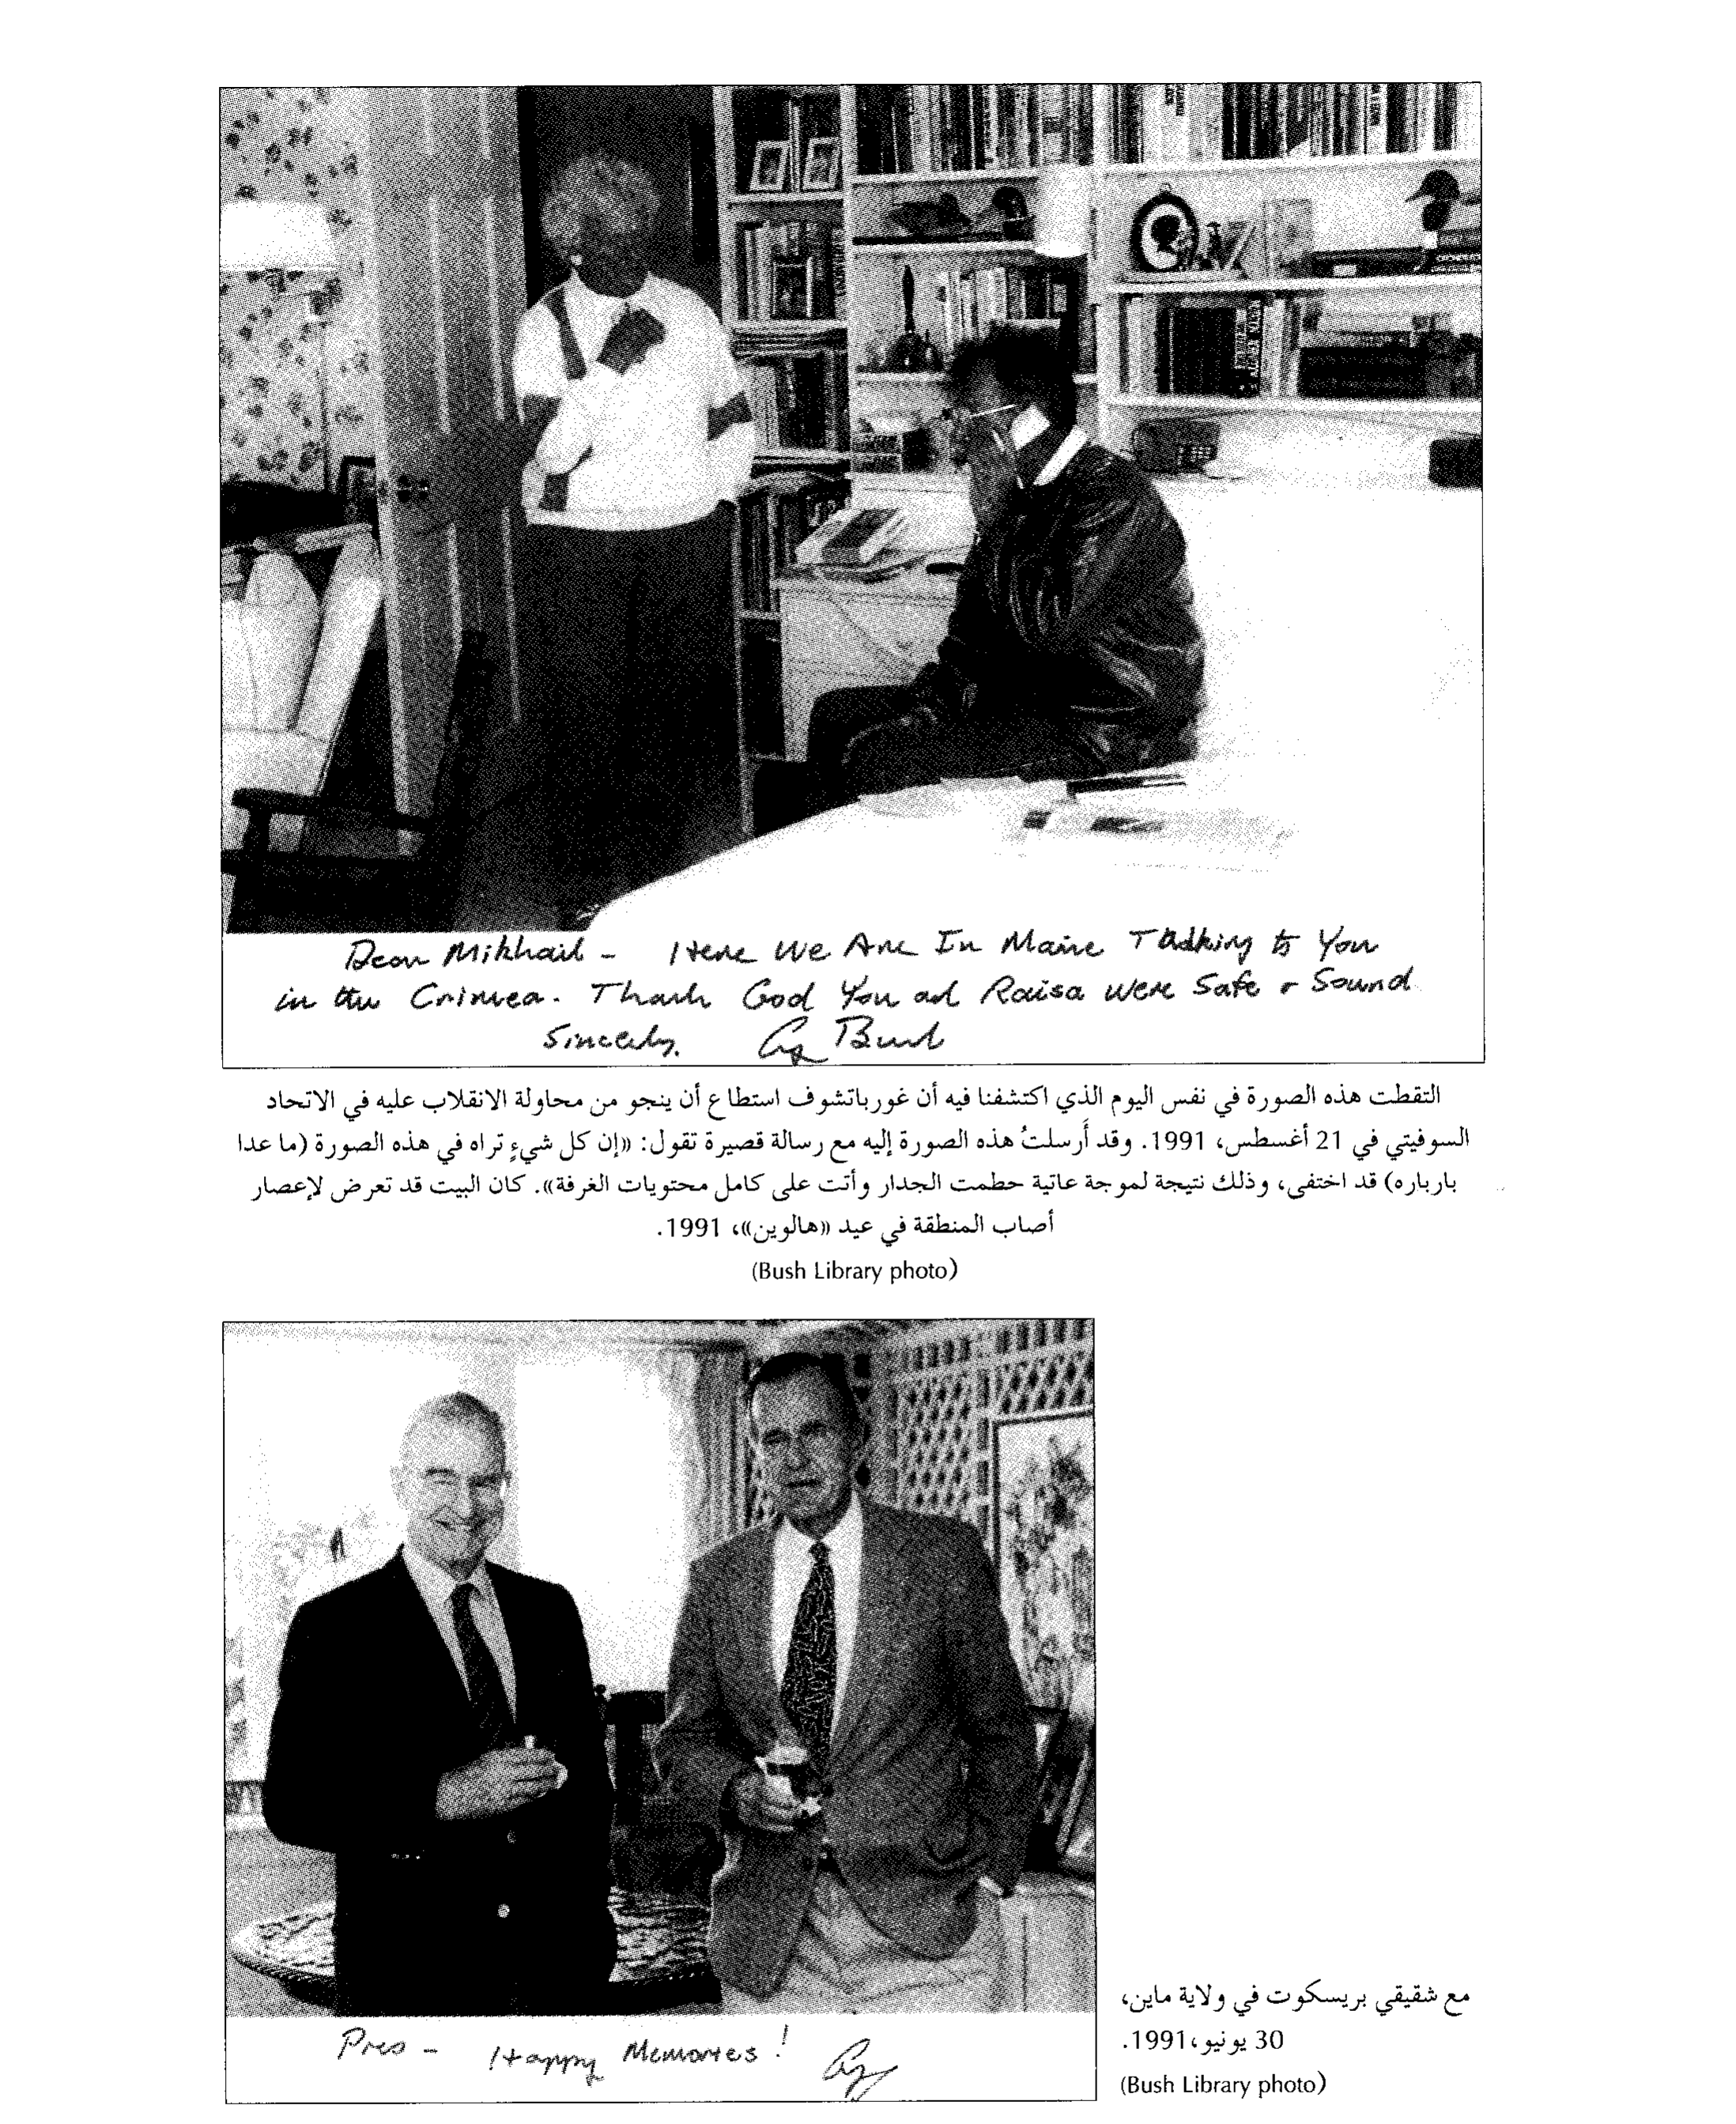 Dear Mikhail - Here We Are In Maine Talking to You
in the Crimea. Thank God You and Raisa were Safe + Sound
Sincerely, Bush
التقطت هذه الصورة في نفس اليوم الذي اكتشفنا فيه أن غورباتشوف استطاع أن ينجو من محاولة الانقلاب عليه في الاتحاد
السوفيتي في 21 أغسطس، 1991. وقد أَرسلتُ هذه الصورة إليه مع رسالة قصيرة تقول: «إن كل شيءٍ تراه في هذه الصورة (ما عدا
بارباره) قد اختفى، وذلك نتيجة لموجة عاتية حطمت الجدار وأتت على كامل محتويات الغرفة». كان البيت قد تعرض لإعصار
أصاب المنطقة في عيد «هالوين»، 1991.
(Bush Library photo)
Pres - Happy Memories!
مع شقيقي بريسكوت في ولاية ماين،
30 يونيو، 1991.
(Bush Library photo)